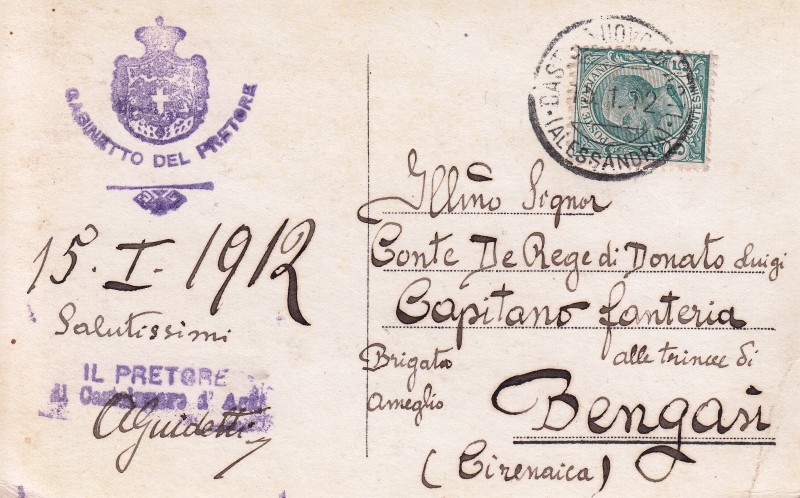 GABINETTO DEL PRETORE
15. I. 1912
Salutissimi
IL PRETORE
di
AGuidetti
(ALESSANDRIA)
POSTE ITALIANE
Illmo Signor
Conte De Rege di Donato Luigi
Capitano fanteria
Brigata Ameglio
alle trincee di
Bengasi
(Cirenaica)